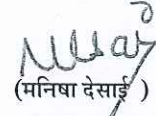 (मनिषा देसाई )